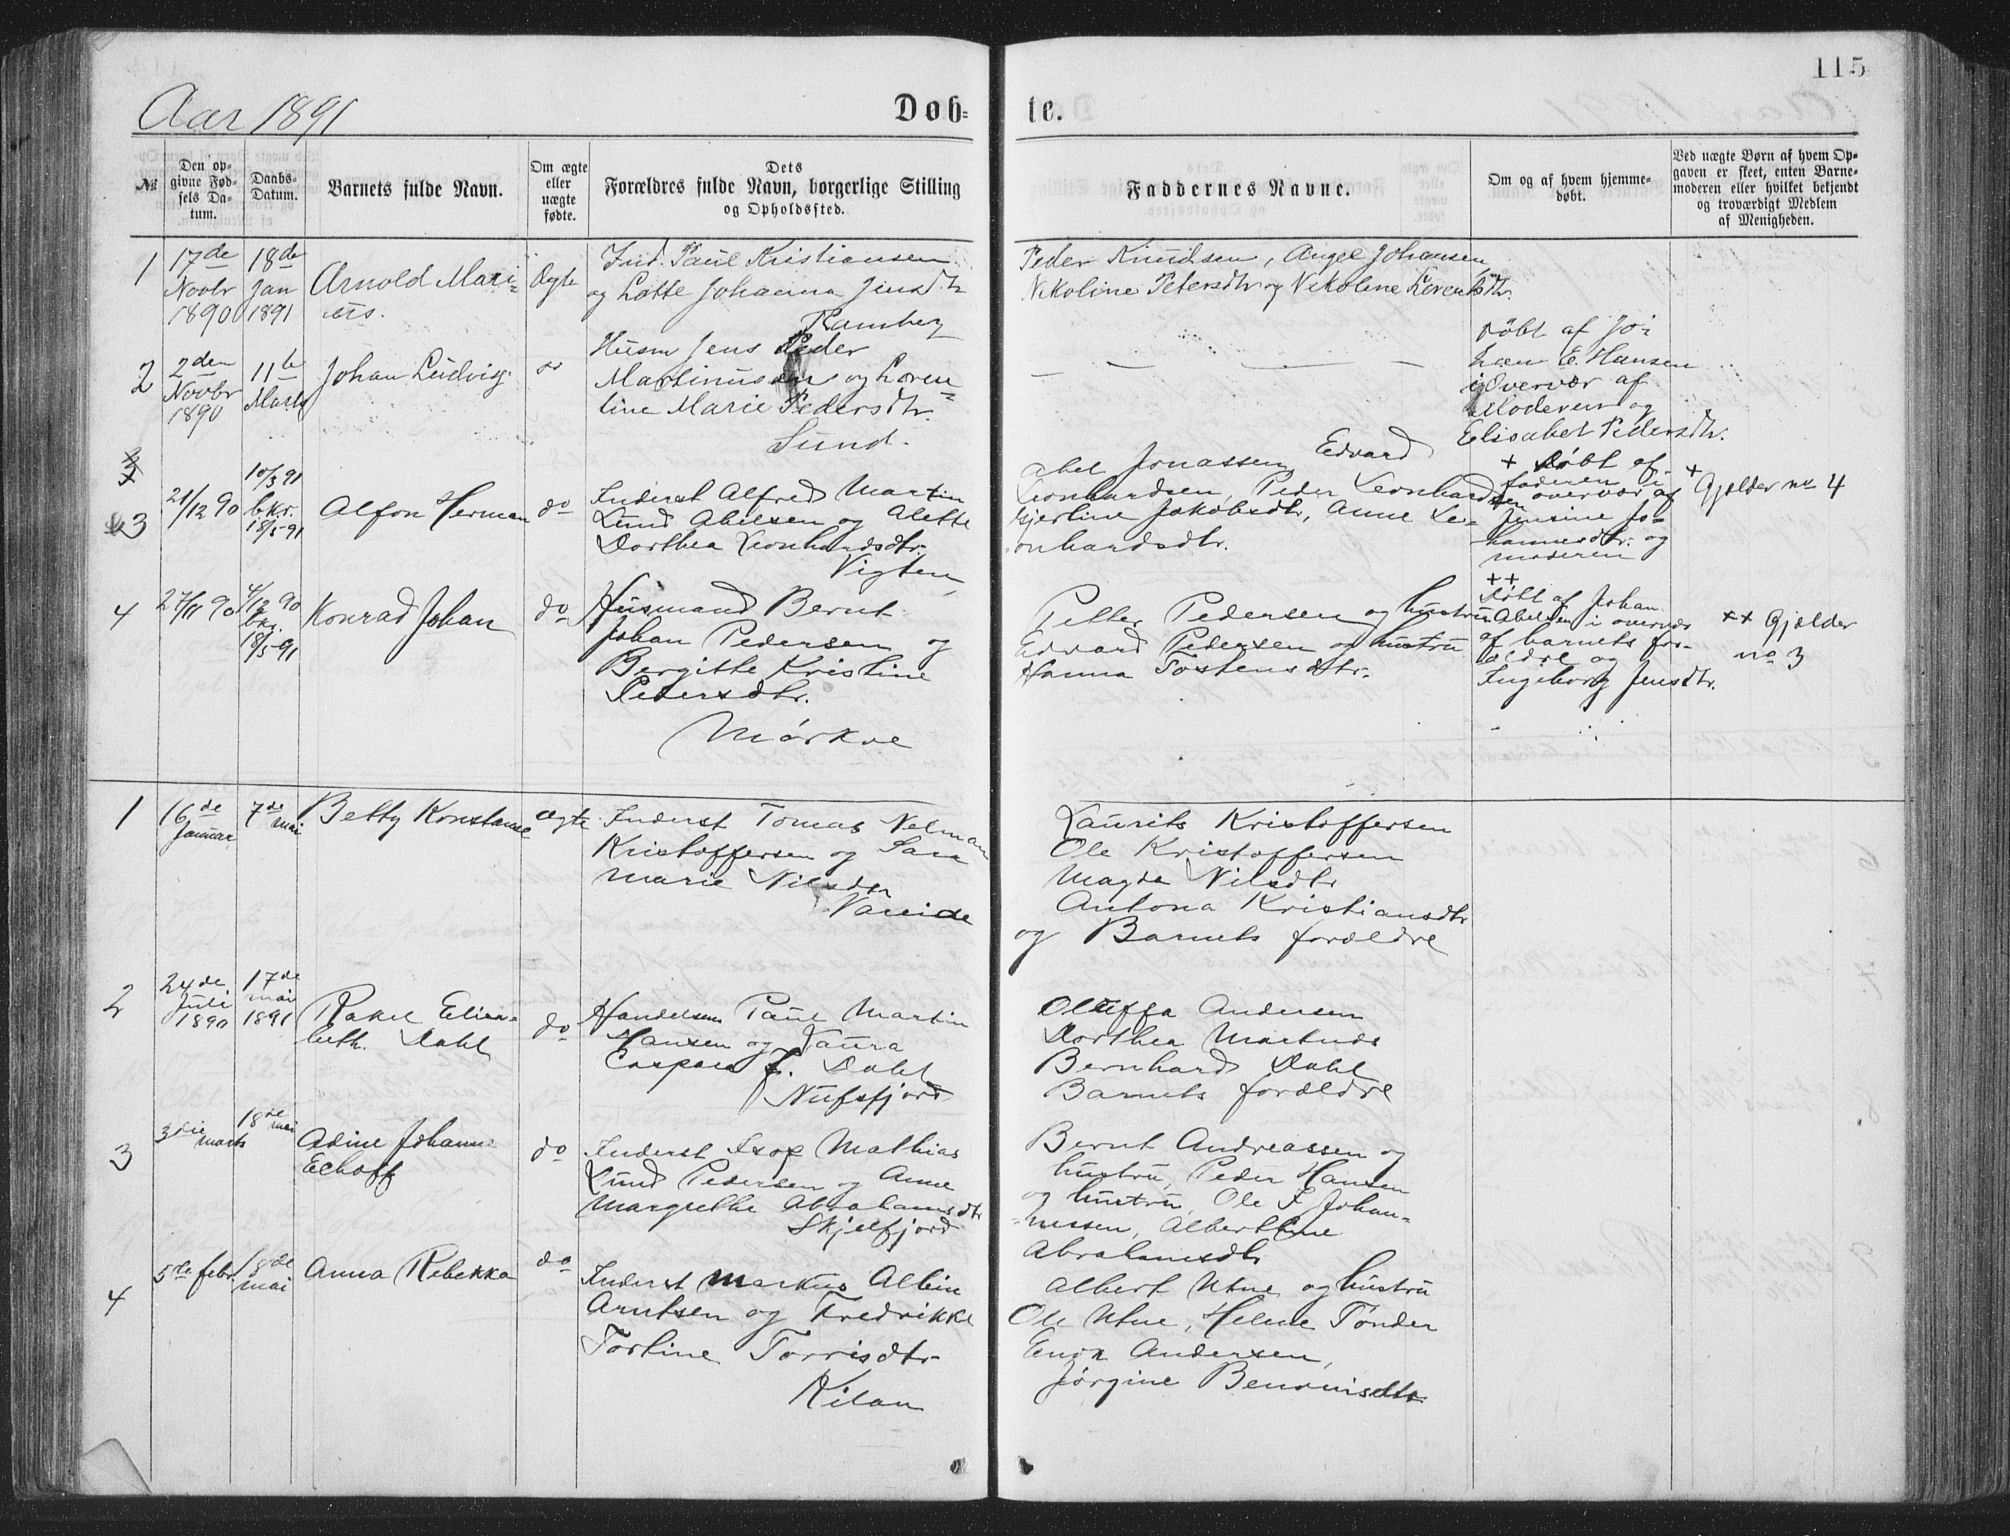 115
Aar 1891
Døb-
te.
№
Den op-
givne Fød-
sels Da-
tum.
Daabs-
Datum.
Barnets fulde Navn.
Om ægte
eller
uægte
fødte.
Dets
Forældres fulde Navn, borgerlige Stilling
og Opholdssted.
Faddernes Navne.
Om og af hvem hjemme-
døbt.
Ved uægte Børn af hvem Op-
gaven er skeet, enten Barne-
moderen eller hvilket bekjendt
og troværdigt Medlem
af Menigheden.
1
17de
Novbr
1890
18de
Jan
1891
Arnold Mari-
us.
Ægte
Ind. Paul Kristiansen
og Lotte Johanna Jensdtr
Ramberg
Peder Knudsen, Angel Johansen,
Nikoline Petersdtr og Nikoline Lorentsdtr.
2
2den
Novbr
1890
11te
Marts
Johan Ludvig
Husm Jens Peder
Martinussen og Loren-
tine Marie Pedersdtr.
Sund.
Døbt af Jo-
E. Hansen
i Overvær af
Moderen og
Elisabet Pedersdtr.
3
21/12 90
10/3 91
bkr.
18/5-91
Alfon Herman
do
Inderst Alfred Martin
Lund Abelsen og Alette
Dorthea Leonhardsdtr.
Vigten
Abel Jonassen, Edvard
Leonhardsen, Peder Leonhardsen
Gjertine Jakobsdtr, Anne Le-
onhardsdtr.
+ Døbt af
faderen i
overvær af
Jensine Jo-
hannesdtr. og
moderen
+ Gjælder no 4
4
27/11 90
4/12 90
bkr.
18/5-91
Konrad Johan
do
Husmand Bernt
Johan Pedersen og
Bergitte Kristine
Pedersdtr.
Mørkve
Petter Pedersen og hustru
Edvard Pedersen og hustru
Hanna Tostensdtr.
++
Døbt af Johan
Abelsen i overvær
af barnets for-
ældre og
Ingeborg Jensdtr.
++ Gjælder
no 3
1
16de
Januar
7de
mai
Betty Konstanse
Ægte
Inderst Tomas Nelman
Kristoffersen og Sara
Marie Nilsdtr
Vareide
Laurits Kristoffersen
Ole Kristoffersen
Magda Nilsdtr
Antona Kristiansdtr
og Barnets forældre
2
24de
Juli
1890
17de
mai
1891
Rakel Elisa-
beth. Dahl
do
Handelsm Paul Martin
Hansen og Laura
Caspara f. Dahl
Nufsfjord
Oluffa Andersen
Dorthea Martinds
Bernhard Dahl
Barnets forældre
3
3die
marts
18de
mai
Adine Johanne
Echoff
do
Inderst Isox Mathias
Lund Pedersen og Anne
Margrethe Abrahamsdtr
Skjelfjord
Bernt Andreassen og
hustru, Peder Hansen
og hustru, Ole P Johan-
nessen, Albertine
Abrahamsdtr
4
5te febr.
18de
mai
Anna Rebekka
do
Inderst Markus Albin
Arntsen og Fredrikke
Tortine Torrisdtr
Kilan
Albert Utne og hustru
Ole Utne, Helene Tønder
Enok Andersen,
Jørgine Benonisdtr